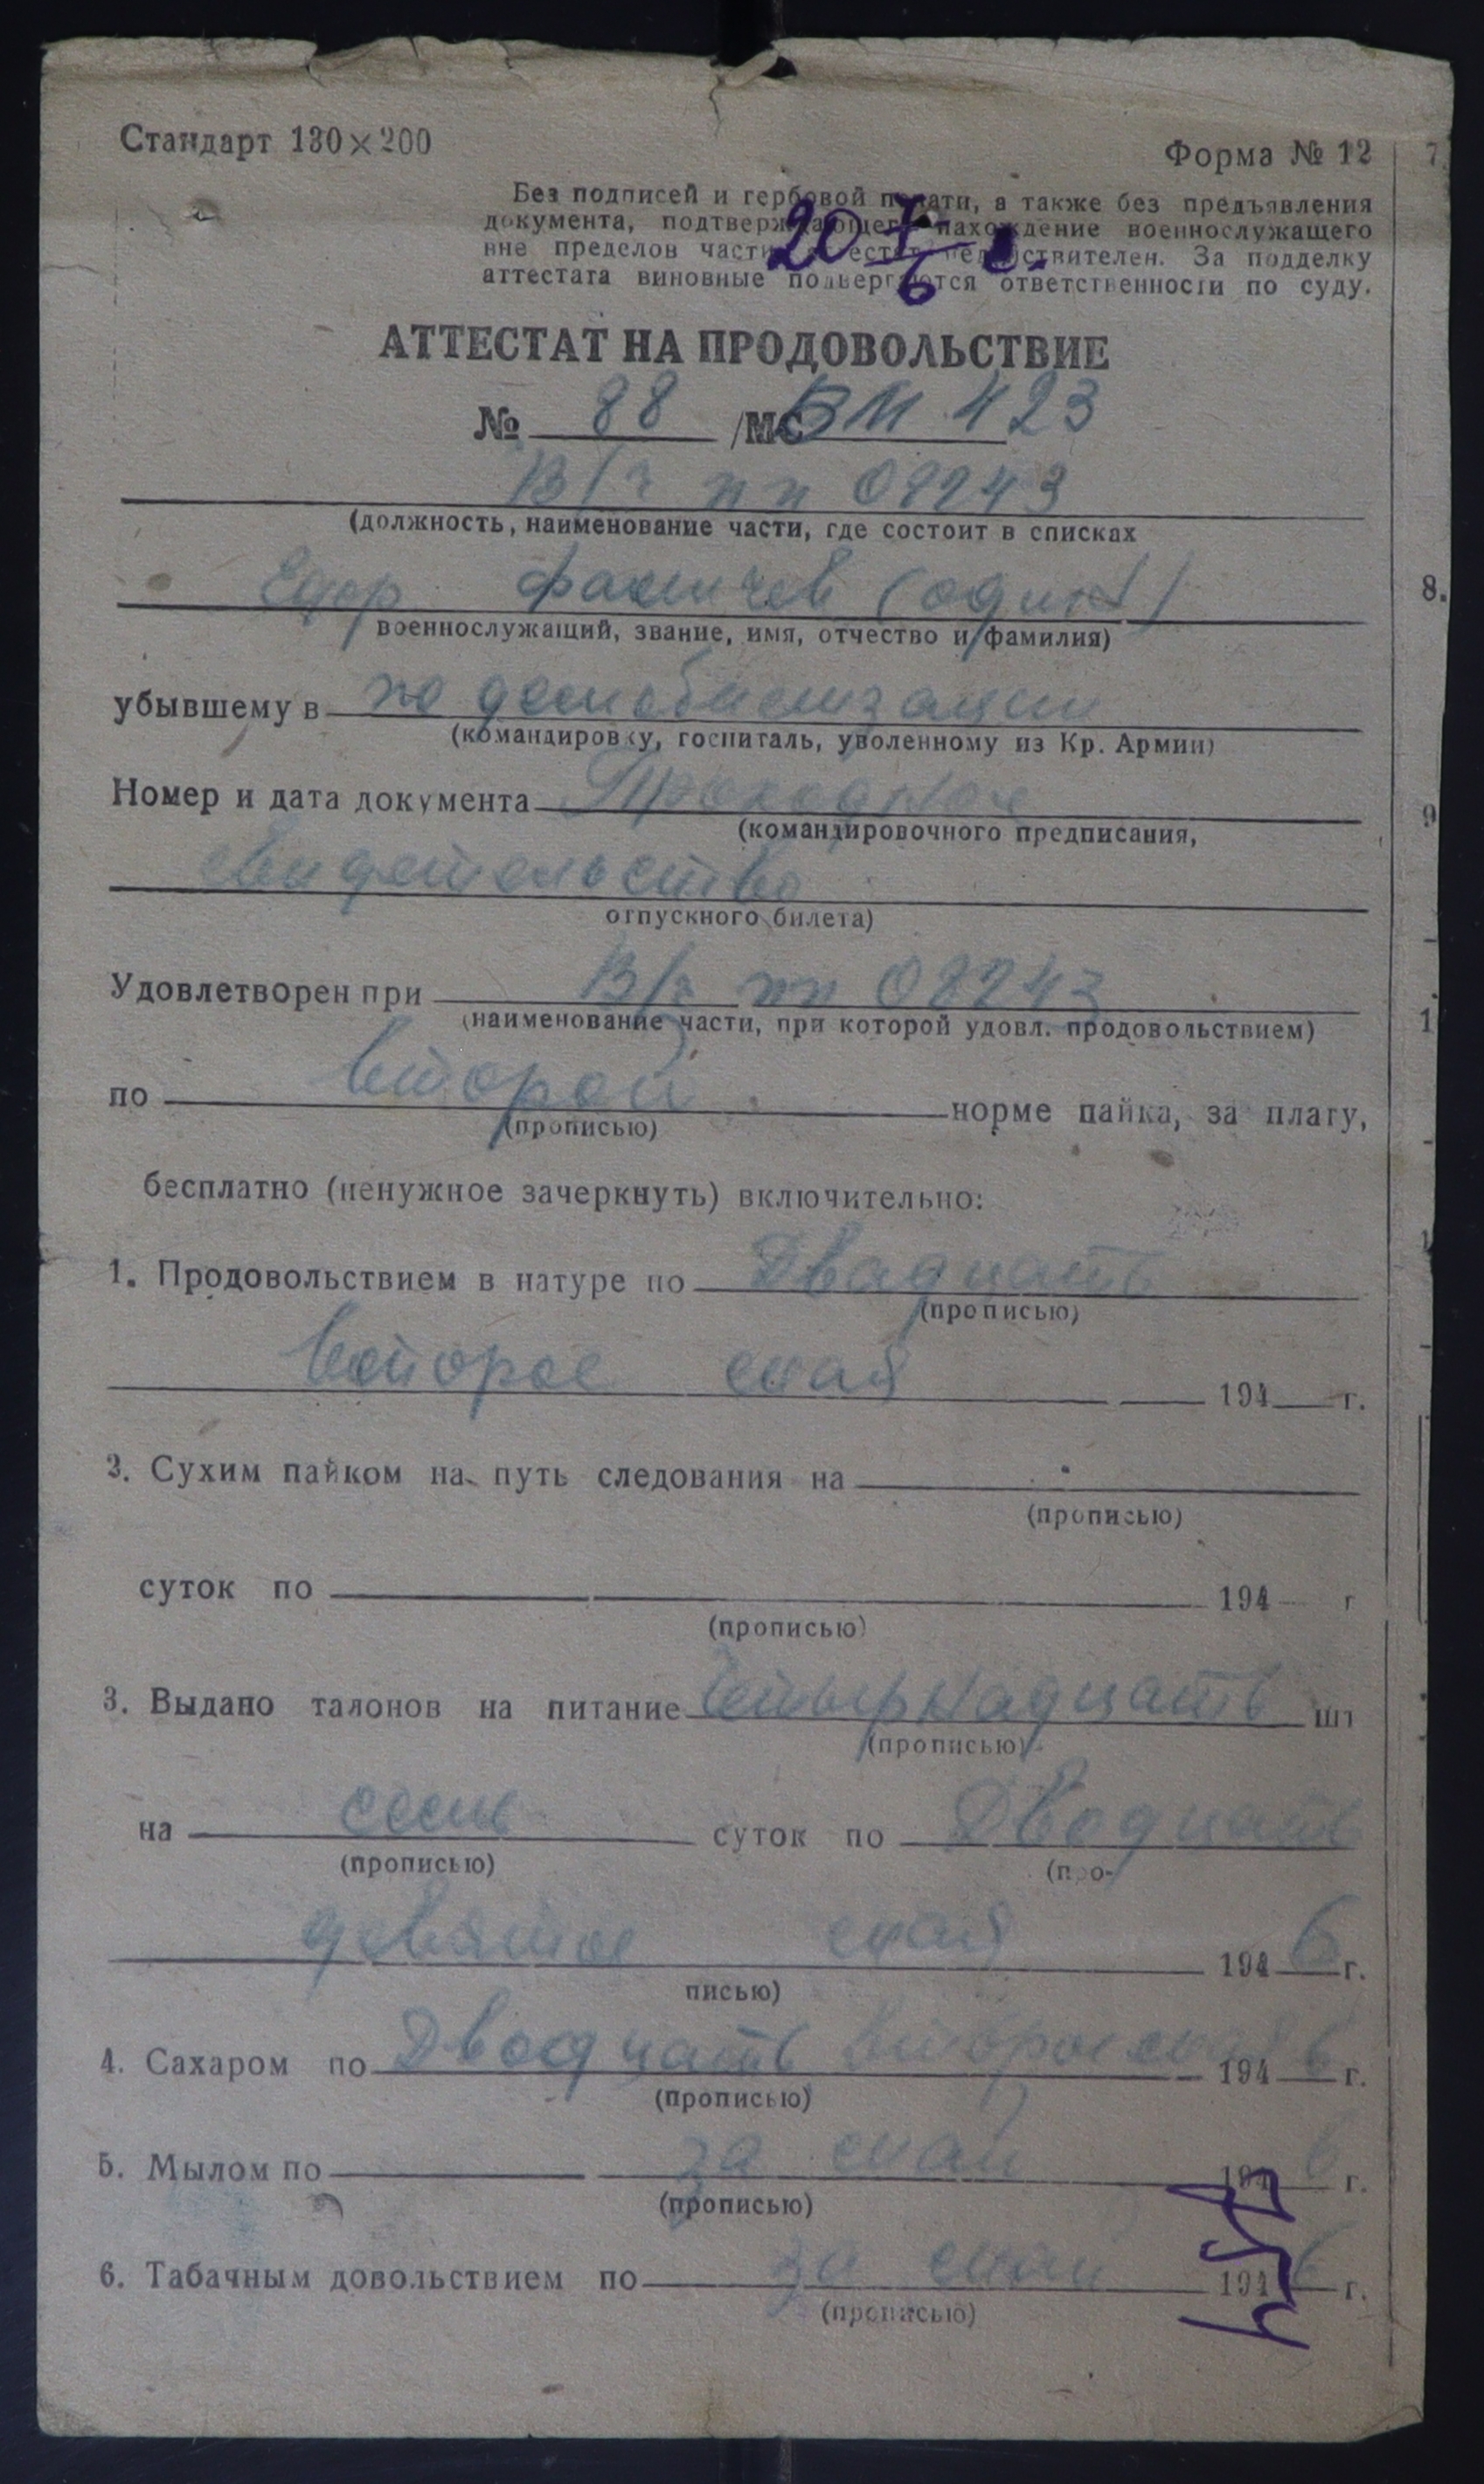 Стандарт 130×200
Форма № 12
Без подписей и гербовой печати, а также без предъявления
документа, подтверждающего нахождение военнослужащего
вне пределов части, аттестат недействителен. За подделку
аттестата виновные подвергаются ответственности по суду.
20 7/6
АТТЕСТАТ НА ПРОДОВОЛЬСТВИЕ
№ 88 /МС ВМ 423
В/ч пп 08243
(должность, наименование части, где состоит в списках
Фамичев (один)
военнослужащий, звание, имя, отчество и фамилия)
убывшему в по демобилизации
(командировку, госпиталь, уволенному из Кр. Армии)
Номер и дата документа Проходное
(командировочного предписания,
свидетельство
отпускного билета)
Удовлетворен при В/ч пп 08243
(наименование части, при которой удовл. продовольствием)
по второй норме пайка, за плату,
(прописью)
бесплатно (ненужное зачеркнуть) включительно:
1. Продовольствием в натуре по Двадцать
(прописью)
второе мая 194 г.
2. Сухим пайком на путь следования на
(прописью)
суток по 194 г
(прописью)
3. Выдано талонов на питание Четырнадцать шт
(прописью)
на семь суток по Двадцать
(прописью) (про-
девятое мая 1946 г.
писью)
4. Сахаром по Двадцать второе мая 1946 г.
(прописью)
5. Мылом по за май 1946 г.
(прописью)
6. Табачным довольствием по за май 1946 г.
(прописью)
7.
8.
9
1